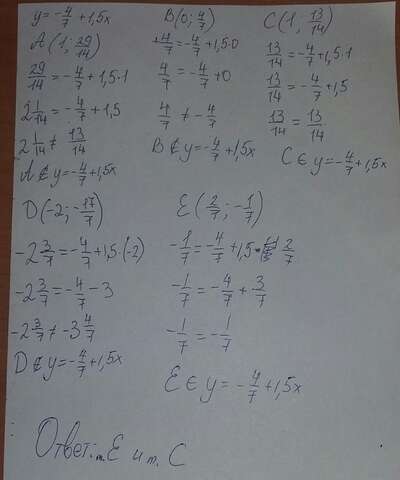 y = -4/7 + 1,5x
A (1; 29/14)
29/14 = -4/7 + 1,5·1
2 1/14 = -4/7 + 1,5
2 1/14 ≠ 13/14
A ∉ y = -4/7 + 1,5x
B (0; 4/7)
4/7 = -4/7 + 1,5·0
4/7 = -4/7 + 0
4/7 ≠ -4/7
B ∉ y = -4/7 + 1,5x
C (1, 13/14)
13/14 = -4/7 + 1,5·1
13/14 = -4/7 + 1,5
13/14 = 13/14
C ∈ y = -4/7 + 1,5x
D (-2; -17/7)
-2 3/7 = -4/7 + 1,5·(-2)
-2 3/7 = -4/7 - 3
-2 3/7 ≠ -3 4/7
D ∉ y = -4/7 + 1,5x
E (2/7; -1/7)
-1/7 = -4/7 + 1,5 · 2/7
-1/7 = -4/7 + 3/7
-1/7 = -1/7
E ∈ y = -4/7 + 1,5x
Ответ: т. E и т. C